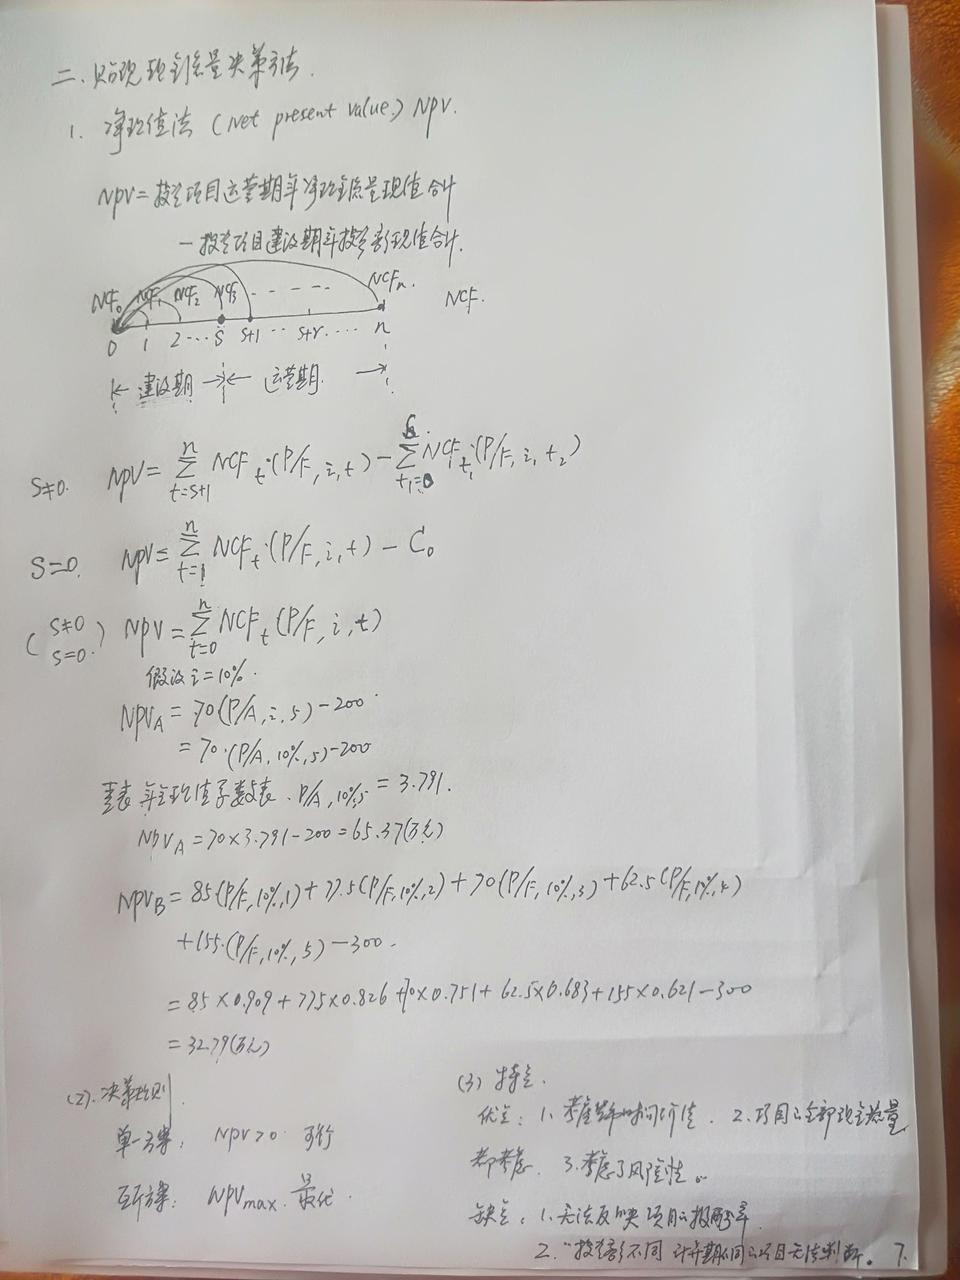 二、贴现现金流量决策方法.
1. 净现值法 (Net present value.) NPV.
NPV=投资项目运营期年净现金流量现值合计
－投资项目建设期年投资额现值合计.
NCF₀ NCF₁ NCF₂ NCF₃ - - - - - NCFₙ. NCF.
0 1 2 ··· S S+1 ·· S+r .... n
建设期 运营期.
S≠0. NPV= ∑ⁿₜ₌ₛ₊₁ NCFₜ·(P/F, i, t) − ∑ˢₜ₁₌₀ NCFₜ₁·(P/F, i, t₂)
S=0. NPV= ∑ⁿₜ₌₁ NCFₜ·(P/F, i, t) − C₀
(S≠0 S=0.) NPV= ∑ⁿₜ₌₀ NCFₜ(P/F, i, t)
假设i=10%.
NPV_A = 70(P/A, i, 5) −200
= 70·(P/A, 10%, 5)−200
查表 年金现值系数表. P/A, 10%,5 = 3.791.
NPV_A =70×3.791−200=65.37(万元)
NPV_B = 85(P/F,10%,1)+77.5(P/F,10%,2)+70(P/F,10%,3)+62.5(P/F,10%,4)
+155·(P/F,10%,5)−300.
=85×0.909+77.5×0.826+70×0.751+62.5×0.683+155×0.621−300
=32.79(万元)
(2). 决策规则.
单一方案: NPV>0 可行
互斥方案: NPVmax 最优.
(3) 特点.
优点: 1. 考虑货币时间价值. 2. 项目的全部现金流量
都考虑. 3. 考虑了风险性。
缺点: 1. 无法反映项目的报酬率
2. 投资额不同 计算期不同的项目无法判断。 7.